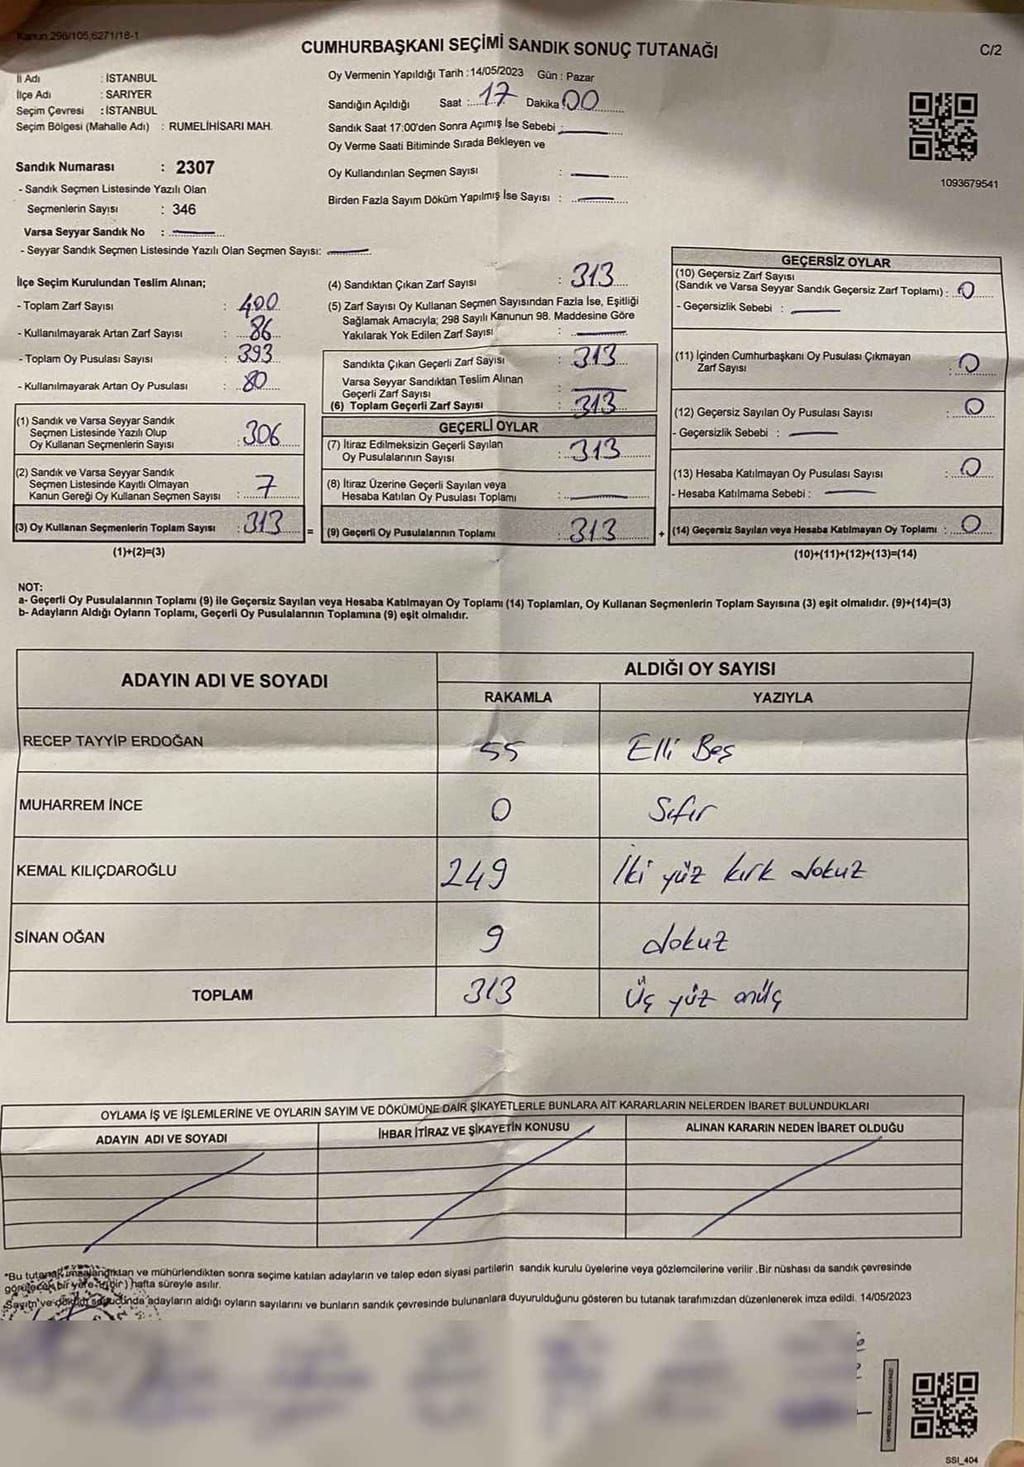 Kanun 298/105,6271/18-1
CUMHURBAŞKANI SEÇİMİ SANDIK SONUÇ TUTANAĞI
C/2
İl Adı : İSTANBUL
İlçe Adı : SARIYER
Seçim Çevresi : İSTANBUL
Seçim Bölgesi (Mahalle Adı) : RUMELİHİSARI MAH.
Oy Vermenin Yapıldığı Tarih : 14/05/2023 Gün : Pazar
Sandığın Açıldığı Saat : 17 Dakika 00
Sandık Saat 17:00'den Sonra Açımış İse Sebebi :
Oy Verme Saati Bitiminde Sırada Bekleyen ve
Oy Kullandırılan Seçmen Sayısı :
Birden Fazla Sayım Döküm Yapılmış İse Sayısı :
1093679541
Sandık Numarası : 2307
- Sandık Seçmen Listesinde Yazılı Olan
Seçmenlerin Sayısı : 346
Varsa Seyyar Sandık No :
- Seyyar Sandık Seçmen Listesinde Yazılı Olan Seçmen Sayısı:
İlçe Seçim Kurulundan Teslim Alınan;
- Toplam Zarf Sayısı : 400
- Kullanılmayarak Artan Zarf Sayısı : 86
- Toplam Oy Pusulası Sayısı : 393
- Kullanılmayarak Artan Oy Pusulası : 80
(1) Sandık ve Varsa Seyyar Sandık
Seçmen Listesinde Yazılı Olup
Oy Kullanan Seçmenlerin Sayısı : 306
(2) Sandık ve Varsa Seyyar Sandık
Seçmen Listesinde Kayıtlı Olmayan
Kanun Gereği Oy Kullanan Seçmen Sayısı : 7
(3) Oy Kullanan Seçmenlerin Toplam Sayısı : 313 =
(1)+(2)=(3)
(4) Sandıktan Çıkan Zarf Sayısı : 313
(5) Zarf Sayısı Oy Kullanan Seçmen Sayısından Fazla İse, Eşitliği
Sağlamak Amacıyla; 298 Sayılı Kanunun 98. Maddesine Göre
Yakılarak Yok Edilen Zarf Sayısı :
Sandıkta Çıkan Geçerli Zarf Sayısı : 313
Varsa Seyyar Sandıktan Teslim Alınan
Geçerli Zarf Sayısı :
(6) Toplam Geçerli Zarf Sayısı : 313
GEÇERLİ OYLAR
(7) İtiraz Edilmeksizin Geçerli Sayılan
Oy Pusulalarının Sayısı : 313
(8) İtiraz Üzerine Geçerli Sayılan veya
Hesaba Katılan Oy Pusulası Toplamı :
(9) Geçerli Oy Pusulalarının Toplamı : 313 +
GEÇERSİZ OYLAR
(10) Geçersiz Zarf Sayısı
(Sandık ve Varsa Seyyar Sandık Geçersiz Zarf Toplamı) : 0
- Geçersizlik Sebebi :
(11) İçinden Cumhurbaşkanı Oy Pusulası Çıkmayan
Zarf Sayısı : 0
(12) Geçersiz Sayılan Oy Pusulası Sayısı : 0
- Geçersizlik Sebebi :
(13) Hesaba Katılmayan Oy Pusulası Sayısı : 0
- Hesaba Katılmama Sebebi :
(14) Geçersiz Sayılan veya Hesaba Katılmayan Oy Toplamı : 0
(10)+(11)+(12)+(13)=(14)
NOT:
a- Geçerli Oy Pusulalarının Toplamı (9) ile Geçersiz Sayılan veya Hesaba Katılmayan Oy Toplamı (14) Toplamları, Oy Kullanan Seçmenlerin Toplam Sayısına (3) eşit olmalıdır. (9)+(14)=(3)
b- Adayların Aldığı Oyların Toplamı, Geçerli Oy Pusulalarının Toplamına (9) eşit olmalıdır.
ADAYIN ADI VE SOYADI
ALDIĞI OY SAYISI
RAKAMLA YAZIYLA
RECEP TAYYİP ERDOĞAN 55 Elli Beş
MUHARREM İNCE 0 Sıfır
KEMAL KILIÇDAROĞLU 249 İki yüz kırk dokuz
SİNAN OĞAN 9 dokuz
TOPLAM 313 Üç yüz onüç
OYLAMA İŞ VE İŞLEMLERİNE VE OYLARIN SAYIM VE DÖKÜMÜNE DAİR ŞİKAYETLERLE BUNLARA AİT KARARLARIN NELERDEN İBARET BULUNDUKLARI
ADAYIN ADI VE SOYADI İHBAR İTİRAZ VE ŞİKAYETİN KONUSU ALINAN KARARIN NEDEN İBARET OLDUĞU
*Bu tutanak imzalandıktan ve mühürlendikten sonra seçime katılan adayların ve talep eden siyasi partilerin sandık kurulu üyelerine veya gözlemcilerine verilir .Bir nüshası da sandık çevresinde
görülecek bir yere (bir) hafta süreyle asılır.
Sayım ve döküm sonucunda adayların aldığı oyların sayılarını ve bunların sandık çevresinde bulunanlara duyurulduğunu gösteren bu tutanak tarafımızdan düzenlenerek imza edildi. 14/05/2023
SSI_404